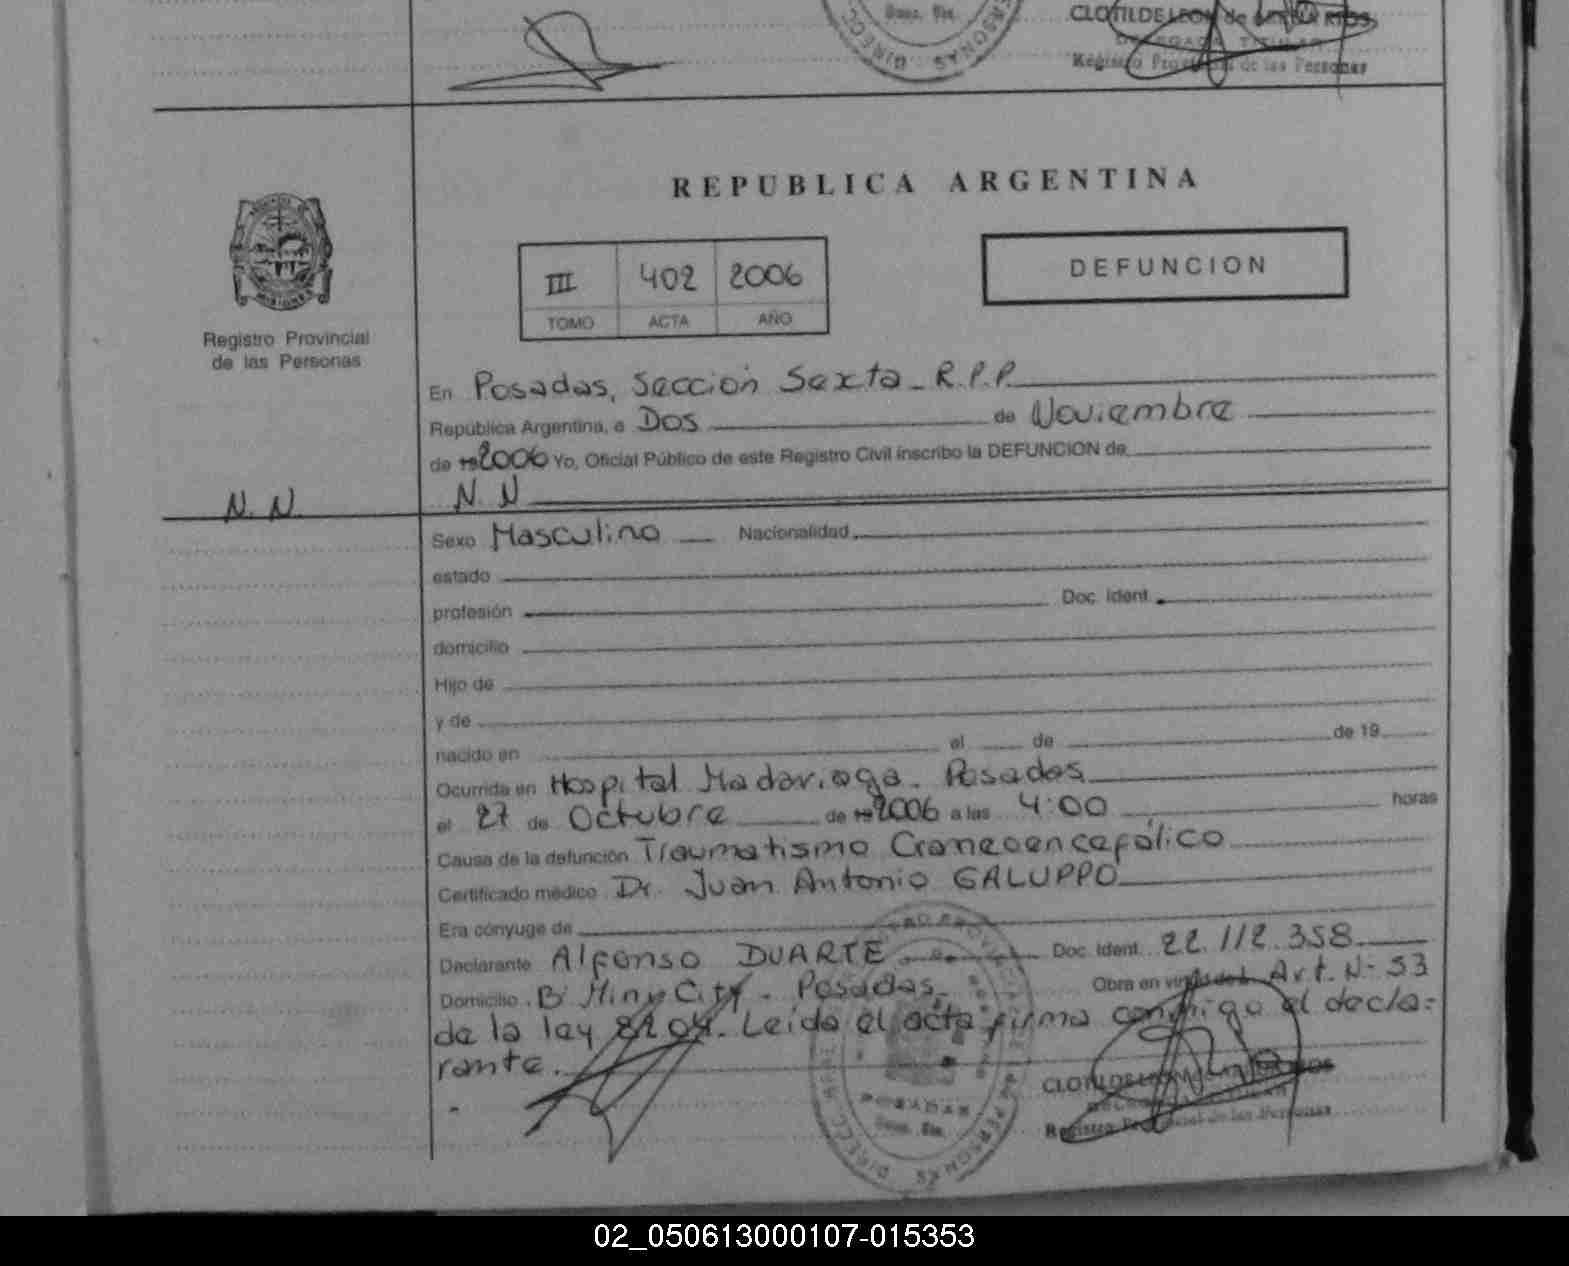 CLOTILDE LEON de
DELEGADA TITULAR
Registro Provincial de las Personas
REPUBLICA ARGENTINA
III 402 2006
TOMO ACTA AÑO
DEFUNCION
MISIONES
Registro Provincial
de las Personas
En Posadas, Sección Sexta - R.P.P.
República Argentina, a Dos de Noviembre
de 19 2006 Yo, Oficial Público de este Registro Civil inscribo la DEFUNCION de
N. N.
N. N
Sexo Masculino Nacionalidad
estado
profesión Doc. Ident.
domicilio
Hijo de
y de
nacido en el de de 19
Ocurrida en Hospital Madariaga. Posadas
el 27 de Octubre de 19 2006 a las 4:00 horas
Causa de la defunción Traumatismo Craneoencefálico
Certificado médico Dr. Juan Antonio GALUPPO
Era cónyuge de
Declarante Alfonso DUARTE Doc. Ident. 22.112.358
Domicilio B° Miny City - Posadas. Obra en virtud de Art. N° 53
de la ley 8204. Leída el acta firma conmigo el decla=
rante.
POSADAS
CLOTILDE LEON
Registro Provincial de las Personas
02_050613000107-015353